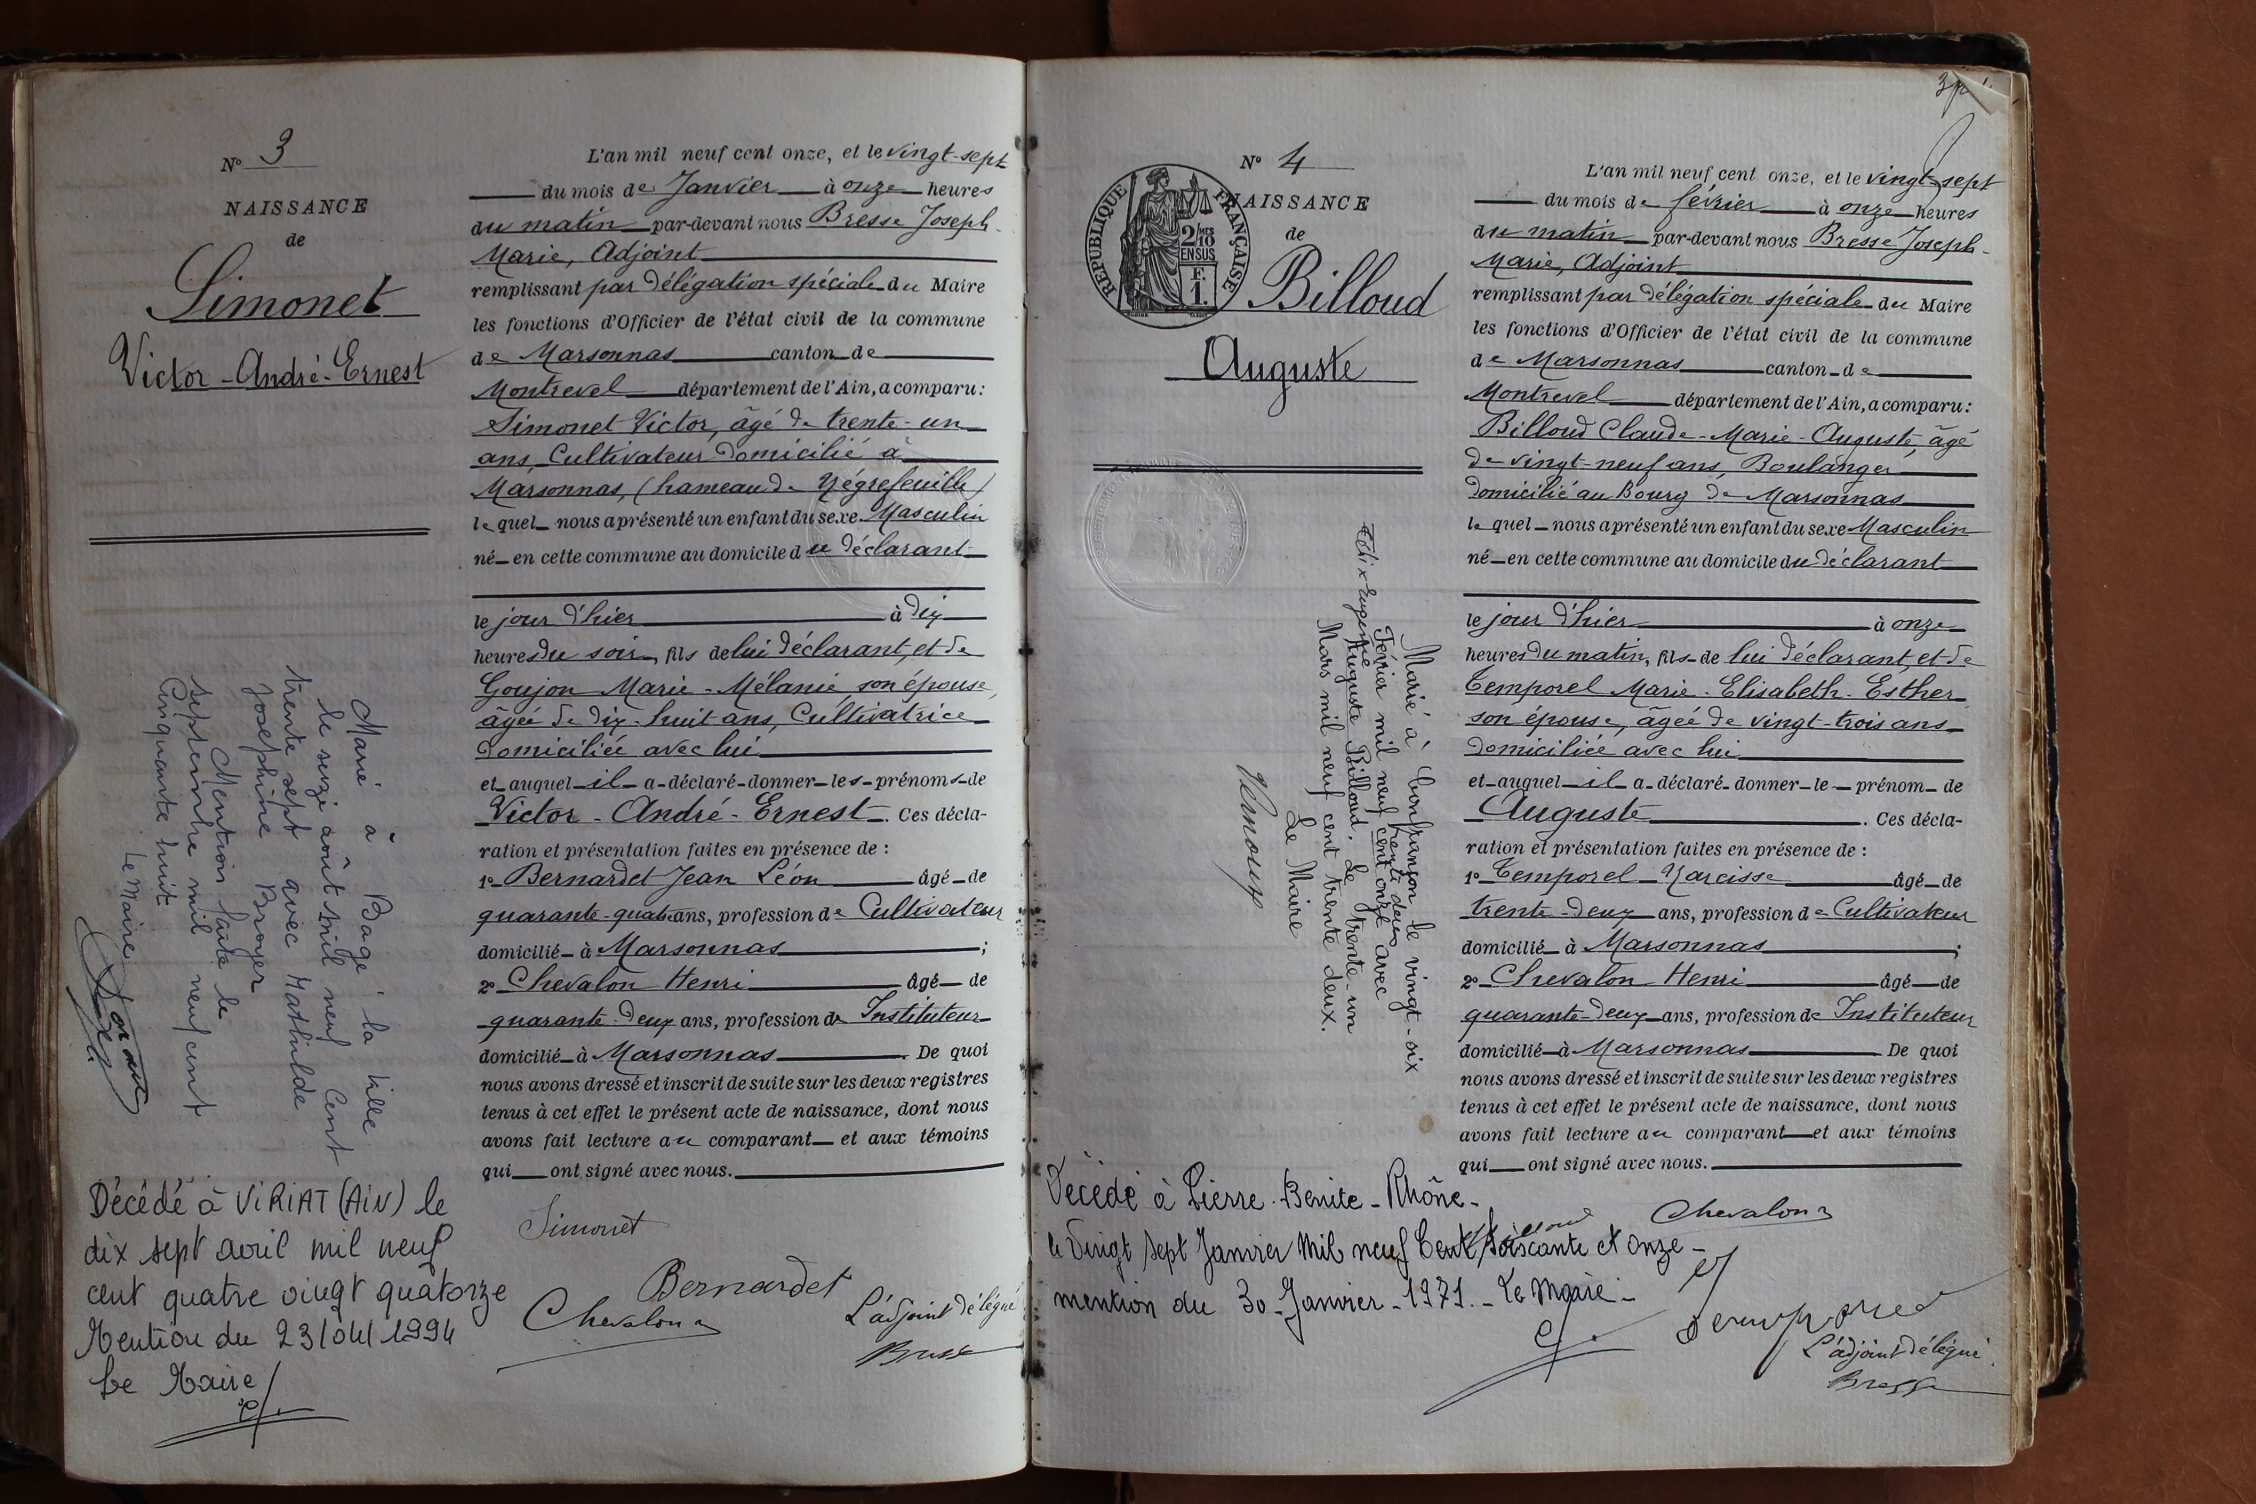 N° 3
NAISSANCE
de
Simonet
Victor-André-Ernest
L'an mil neuf cent onze, et le vingt-sept
du mois de Janvier à onze heures
du matin par-devant nous Bresse Joseph-
Marie, Adjoint
remplissant par délégation spéciale du Maire
les fonctions d'Officier de l'état civil de la commune
de Marsonnas canton de
Montrevel département de l'Ain, a comparu:
Simonet Victor, âgé de trente-un
ans, Cultivateur domicilié à
Marsonnas, (hameau de Négrefeuille)
lequel nous a présenté un enfant du sexe Masculin
né en cette commune au domicile du déclarant
le jour d'hier à dix
heures du soir, fils de lui déclarant, et de
Goujon Marie-Mélanie, son épouse,
âgée de dix-huit ans, Cultivatrice
domiciliée avec lui
et auquel il a déclaré donner les prénoms de
Victor-André-Ernest. Ces décla-
ration et présentation faites en présence de :
1° Bernardet Jean Léon âgé de
quarante-quatre ans, profession de Cultivateur
domicilié à Marsonnas ;
2° Chevalon Henri âgé de
quarante-deux ans, profession de Instituteur
domicilié à Marsonnas. De quoi
nous avons dressé et inscrit de suite sur les deux registres
tenus à cet effet le présent acte de naissance, dont nous
avons fait lecture au comparant et aux témoins
qui ont signé avec nous.
Simonet
Bernardet
Chevalon
L'adjoint délégué
Bresse
Marié à Bagé la Ville
le seize août mil neuf Cent
trente sept avec Mathilde
Joséphine Broyer
Mention faite le
septembre mil neuf cent
Cinquante huit
Le Maire
Décédé à VIRIAT (AiN) le
dix sept avril mil neuf
cent quatre vingt quatorze
Mention du 23/04/1994
Le Maire
N° 4
NAISSANCE
de
RÉPUBLIQUE FRANÇAISE
2/10 EN SUS
F.
1.
Billoud
Auguste
L'an mil neuf cent onze, et le vingt-sept
du mois de février à onze heures
du matin par-devant nous Bresse Joseph-
Marie, Adjoint
remplissant par délégation spéciale du Maire
les fonctions d'Officier de l'état civil de la commune
de Marsonnas canton de
Montrevel département de l'Ain, a comparu:
Billoud Claude-Marie-Auguste, âgé
de vingt-neuf ans, Boulanger
domicilié au Bourg de Marsonnas
lequel nous a présenté un enfant du sexe Masculin
né en cette commune au domicile du déclarant
le jour d'hier à onze
heures du matin, fils de lui déclarant, et de
Temporel Marie-Elisabeth-Esther
son épouse, âgée de vingt-trois ans
domiciliée avec lui
et auquel il a déclaré donner le prénom de
Auguste. Ces décla-
ration et présentation faites en présence de :
1° Temporel Narcisse âgé de
trente-deux ans, profession de Cultivateur
domicilié à Marsonnas ;
2° Chevalon Henri âgé de
quarante-deux ans, profession de Instituteur
domicilié à Marsonnas. De quoi
nous avons dressé et inscrit de suite sur les deux registres
tenus à cet effet le présent acte de naissance, dont nous
avons fait lecture au comparant et aux témoins
qui ont signé avec nous.
Chevalon
L'adjoint délégué
Bresse
Marié à Confrançon le vingt-six
Février mil neuf cent onze avec
trente deux
Auguste Billoud. Le trente-un
Mars mil neuf cent trente deux.
Le Maire
Décédé à Pierre-Bénite-Rhône-
le Vingt Sept Janvier Mil neuf Cent Soixante et onze-
mention du 30-Janvier-1971.-Le Maire-